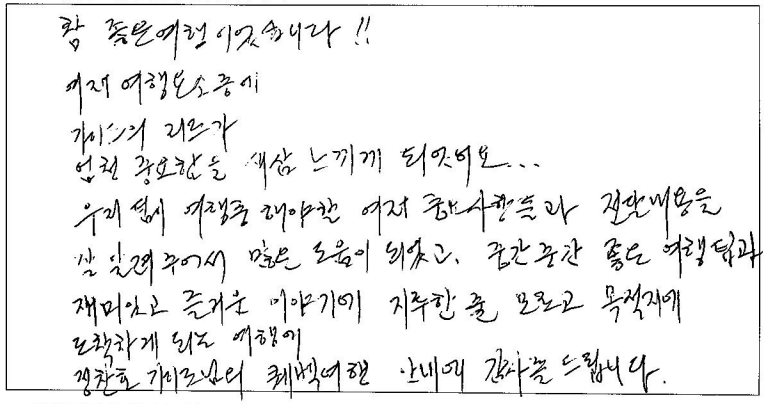 참 좋은여행이었습니다!!
여재 여행요소중에
가이드의 리드가
엄청 중요함을 새삼 느끼게 되었어요...
우리 팀이 여행중 해야할 여러 사항들과 전달내용을
잘 알려주어서 많은 도움이 되었고, 중간중간 좋은 여행팁과
재미있고 즐거운 이야기에 지루한줄 모르고 목적지에
도착하게 되는 여행에
정찬호 가이드님의 퀘벡여행 안내에 감사를 드립니다.